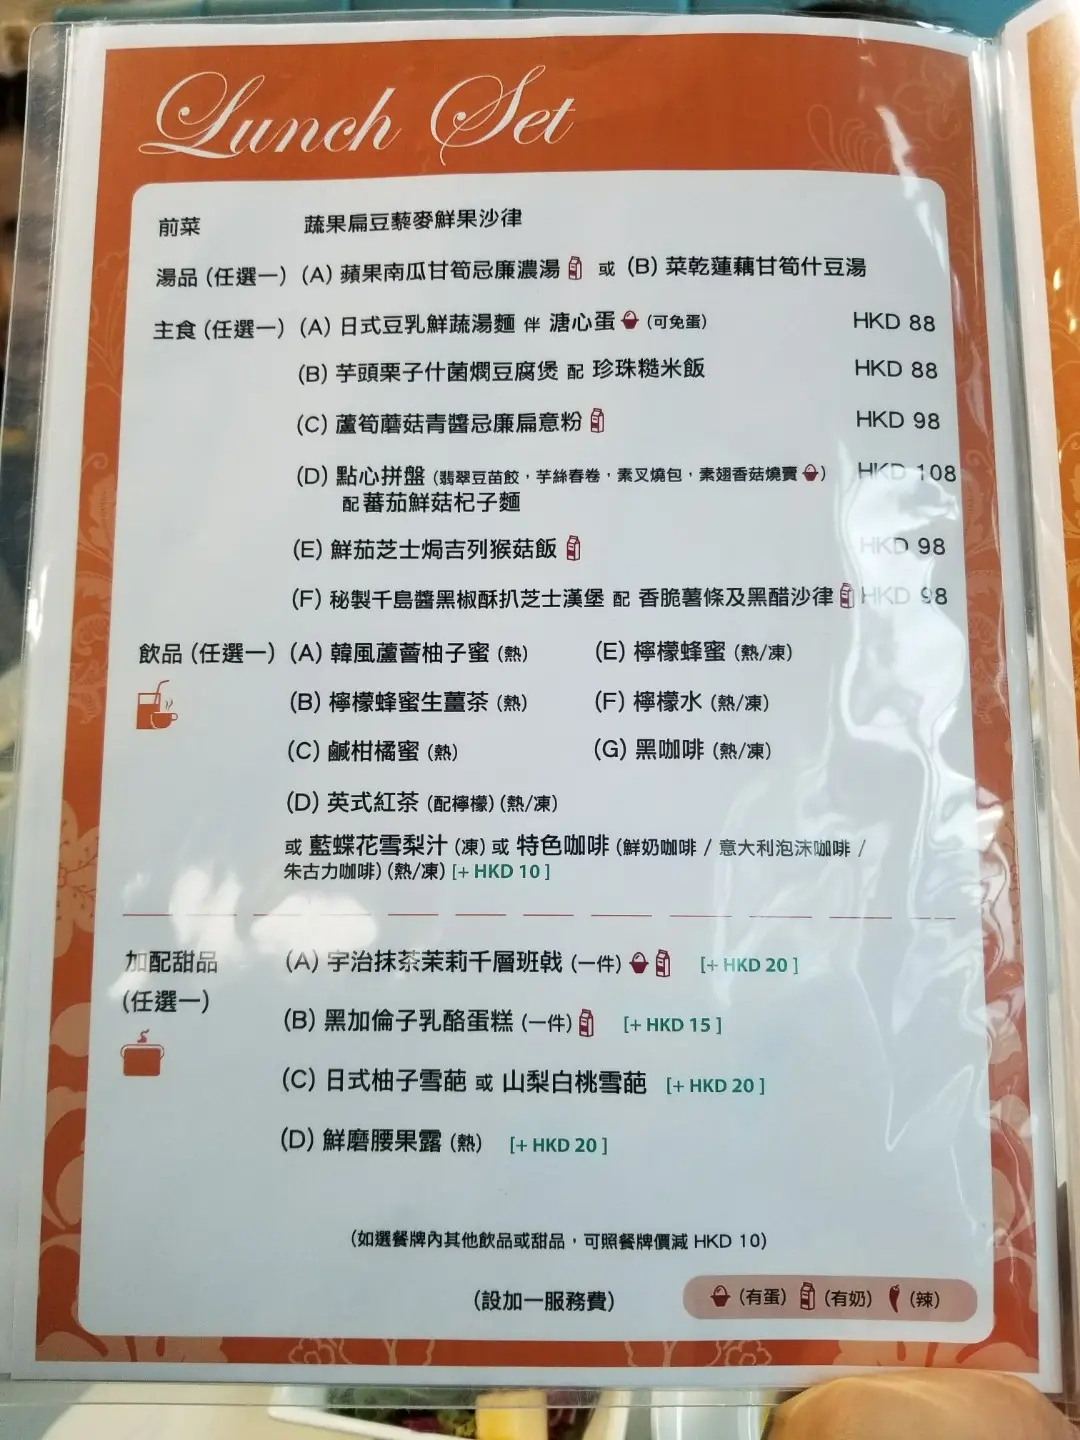 Lunch Set
前菜 蔬果扁豆藜麥鮮果沙律
湯品 (任選一) (A) 蘋果南瓜甘筍忌廉濃湯 或 (B) 菜乾蓮藕甘筍什豆湯
主食 (任選一) (A) 日式豆乳鮮蔬湯麵 伴 溏心蛋 (可免蛋) HKD 88
(B) 芋頭栗子什菌燜豆腐煲 配 珍珠糙米飯 HKD 88
(C) 蘆筍蘑菇青醬忌廉扁意粉 HKD 98
(D) 點心拼盤 (翡翠豆苗餃，芋絲春卷，素叉燒包，素翅香菇燒賣) HKD 108
配蕃茄鮮菇杞子麵
(E) 鮮茄芝士焗吉列猴菇飯 HKD 98
(F) 秘製千島醬黑椒酥扒芝士漢堡 配 香脆薯條及黑醋沙律 HKD 98
飲品 (任選一) (A) 韓風蘆薈柚子蜜 (熱) (E) 檸檬蜂蜜 (熱/凍)
(B) 檸檬蜂蜜生薑茶 (熱) (F) 檸檬水 (熱/凍)
(C) 鹹柑橘蜜 (熱) (G) 黑咖啡 (熱/凍)
(D) 英式紅茶 (配檸檬) (熱/凍)
或 藍蝶花雪梨汁 (凍) 或 特色咖啡 (鮮奶咖啡 / 意大利泡沫咖啡 /
朱古力咖啡) (熱/凍) [+ HKD 10 ]
加配甜品 (A) 宇治抹茶茉莉千層班戟 (一件) [+ HKD 20 ]
(任選一)
(B) 黑加倫子乳酪蛋糕 (一件) [+ HKD 15 ]
(C) 日式柚子雪葩 或 山梨白桃雪葩 [+ HKD 20 ]
(D) 鮮磨腰果露 (熱) [+ HKD 20 ]
(如選餐牌內其他飲品或甜品，可照餐牌價減 HKD 10)
(設加一服務費) (有蛋) (有奶) (辣)